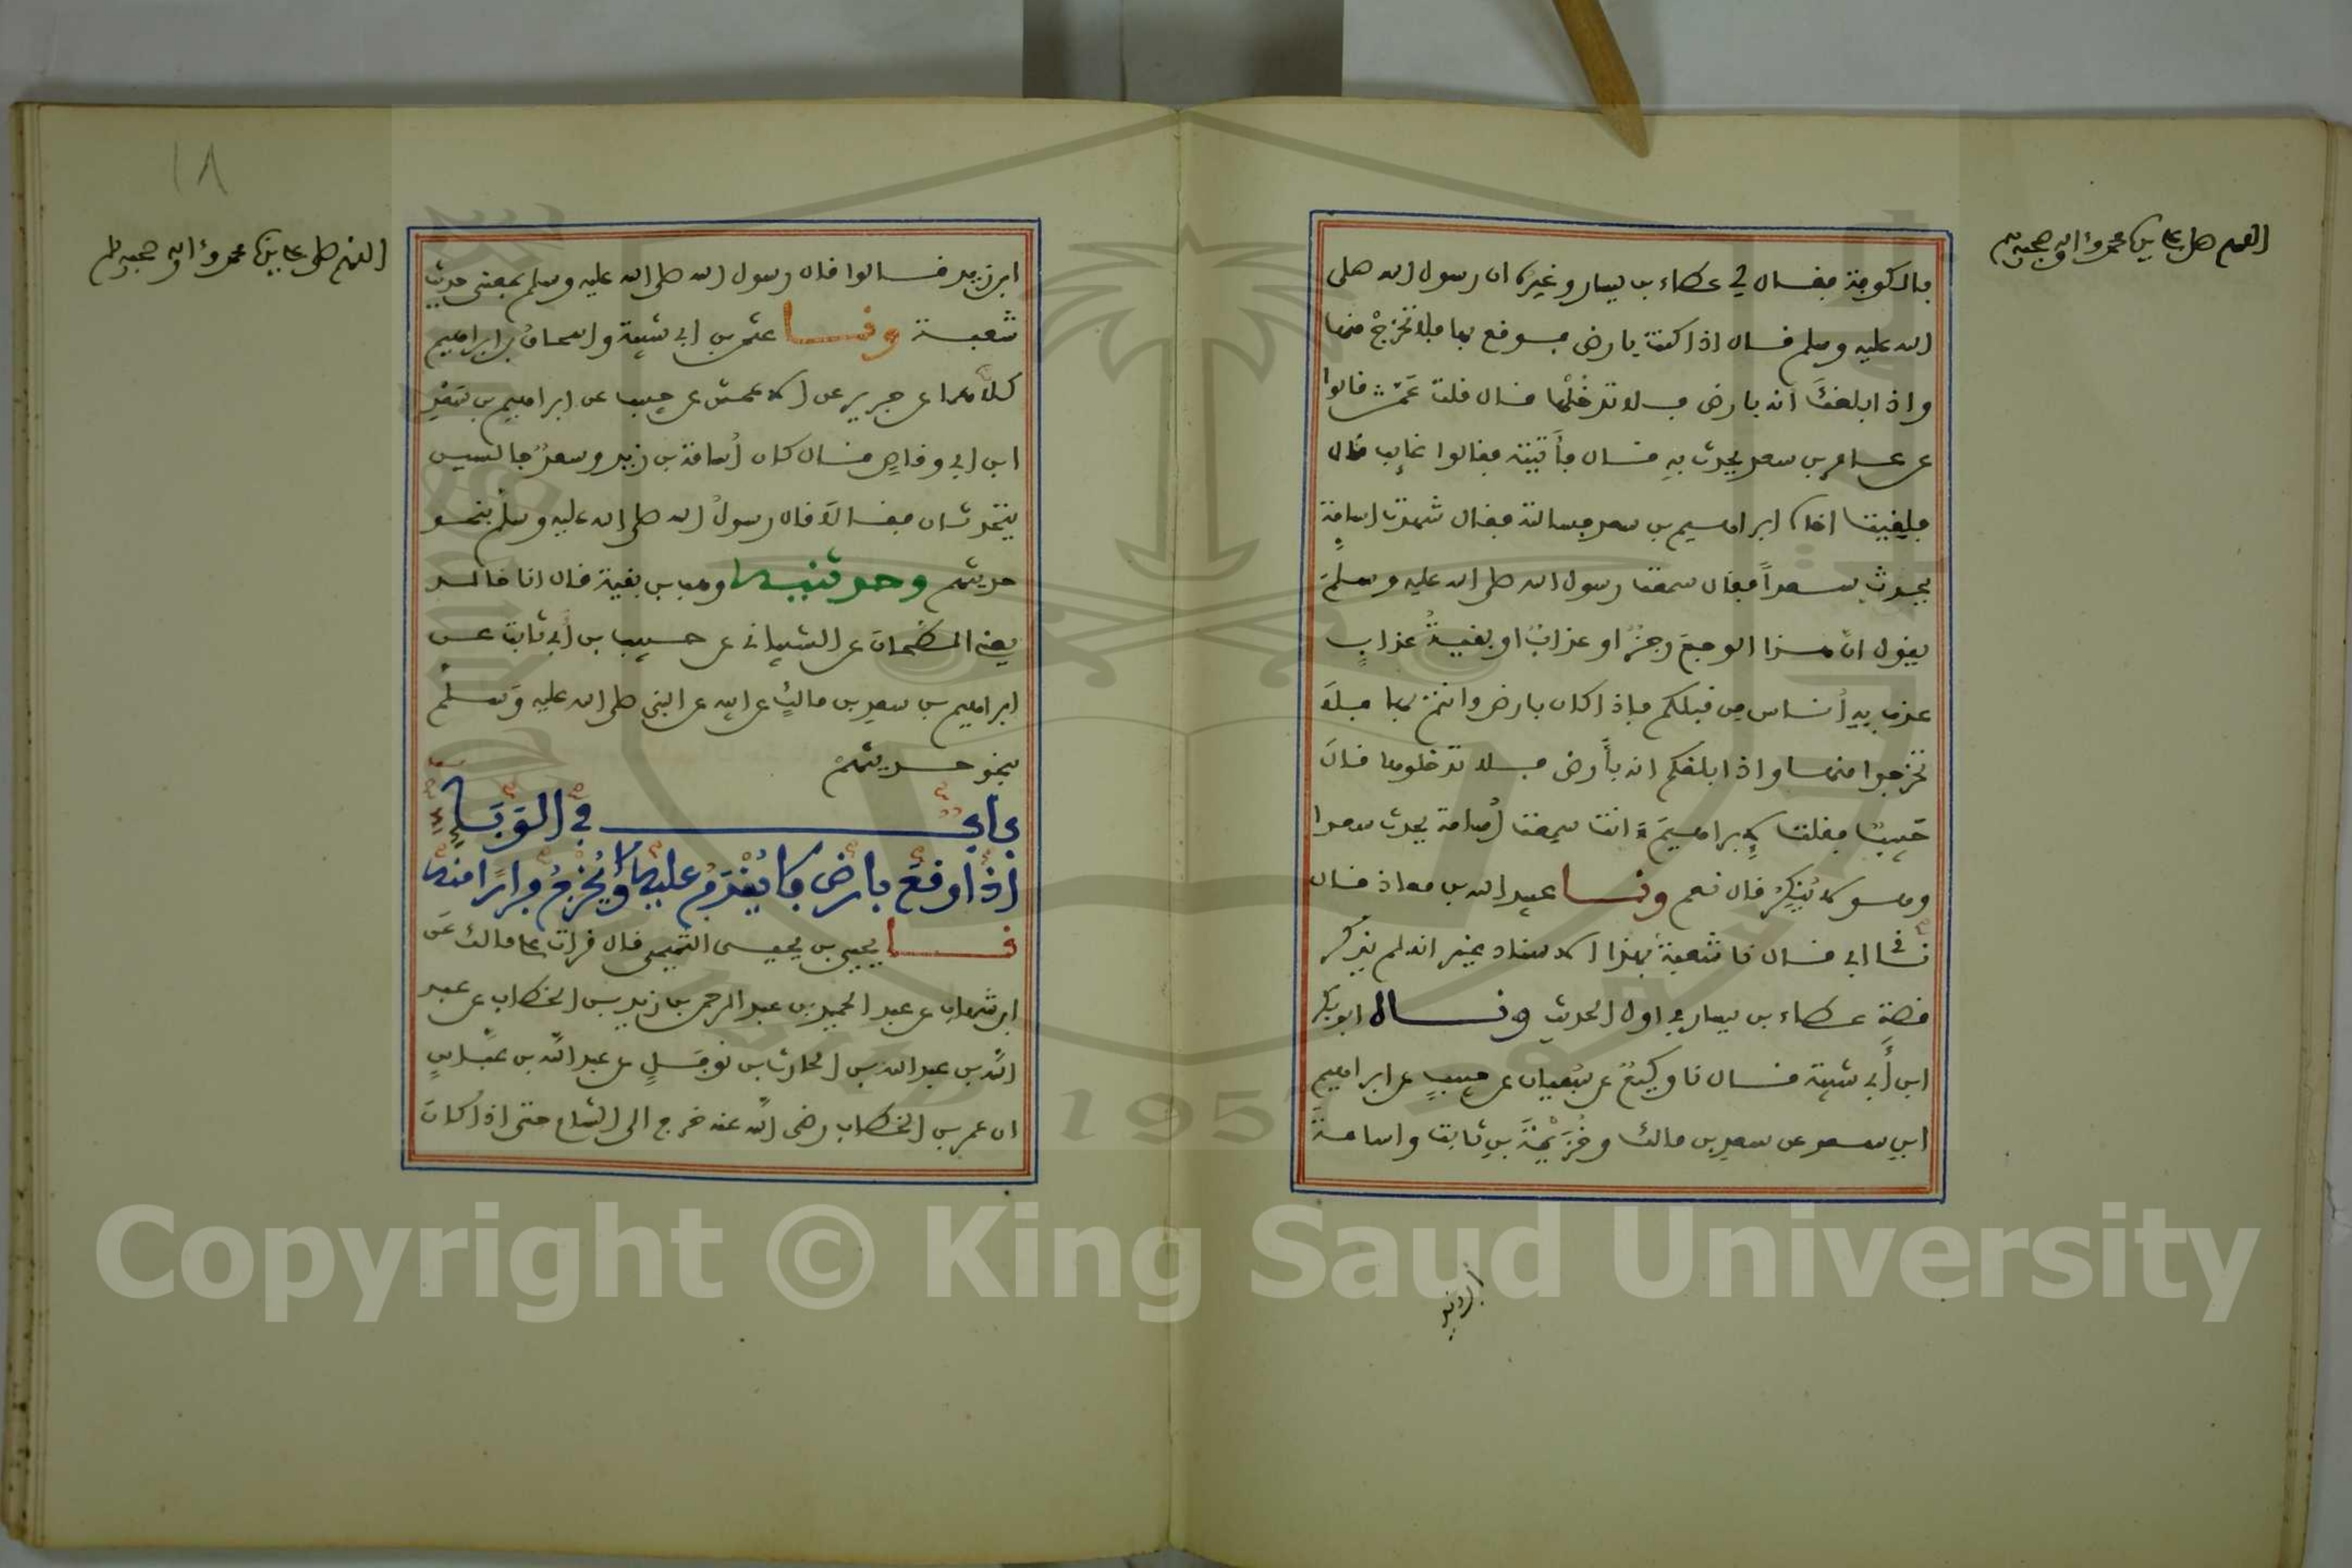 اللهم صل على نبينا محمد وءاله وصحبه وسلم
بالكوفة فقال لي عطاء بن يسار وغيره ان رسول الله صلى
الله عليه وسلم قال اذا كنت بارض فوقع بها فلا تخرج منها
واذا بلغك انه بارض فلا تدخلها قال قلت عمن قالوا
عن عامر بن سعد يحدث به قال فأتيته فقالوا غايب قال
فلقيت اخاه ابراهيم بن سعد فسالته فقال شهدت اسامة
يحدث سعدا فقال سمعت رسول الله صلى الله عليه وسلم
يقول ان هذا الوجع رجز او عذاب او بقية عذاب
عذب به أناس من قبلكم فإذا كان بارض وانتم بها فلا
تخرجوا منها واذا بلغكم انه بأرض فلا تدخلوها قال
حبيب فقلت لإبراهيم ءانت سمعت أسامة يحدث سعدا
وهو لا ينكر قال نعم ونا عبيد الله بن معاذ قال
نا ابي قال نا شعبة بهذا الاسناد غير انه لم يذكر
قصة عطاء بن يسار في اول الحديث ونا ابو بكر
ابن أبي شيبة قال نا وكيع عن سفيان عن حبيب عن ابراهيم
ابن سعد عن سعد بن مالك وخزيمة بن ثابت واسامة
ابن زيد
١٨
اللهم صل على نبينا محمد وءاله وصحبه وسلم
ابن زيد قالوا قال رسول الله صلى الله عليه وسلم بمعنى حديث
شعبة ونا عثمن بن ابي شيبة واسحاق بن ابراهيم
كلاهما عن جرير عن الاعمش عن حبيب عن ابراهيم بن سعد
ابن ابي وقاص قال كان أسامة بن زيد وسعد جالسين
يتحدثان فقالا قال رسول الله صلى الله عليه وسلم بنحو
حديثهم وحدثنيه وهب بن بقية قال انا خالد
يعني الطحان عن الشيباني عن حبيب بن أبي ثابت عن
ابراهيم بن سعد بن مالك عن ابيه عن النبي صلى الله عليه وسلم
بنحو حديثهم
باب في الوباء
اذا وقع بارض فلا يقدم عليها ولا يخرج فرارا منه
نا يحيى بن يحيى التميمي قال قرات على مالك عن
ابن شهاب عن عبد الحميد بن عبد الرحمن بن زيد بن الخطاب عن عبد
الله بن عبد الله بن الحارث بن نوفل عن عبد الله بن عباس
ان عمر بن الخطاب رضي الله عنه خرج الى الشام حتى اذا كان
Copyright © King Saud University
1957